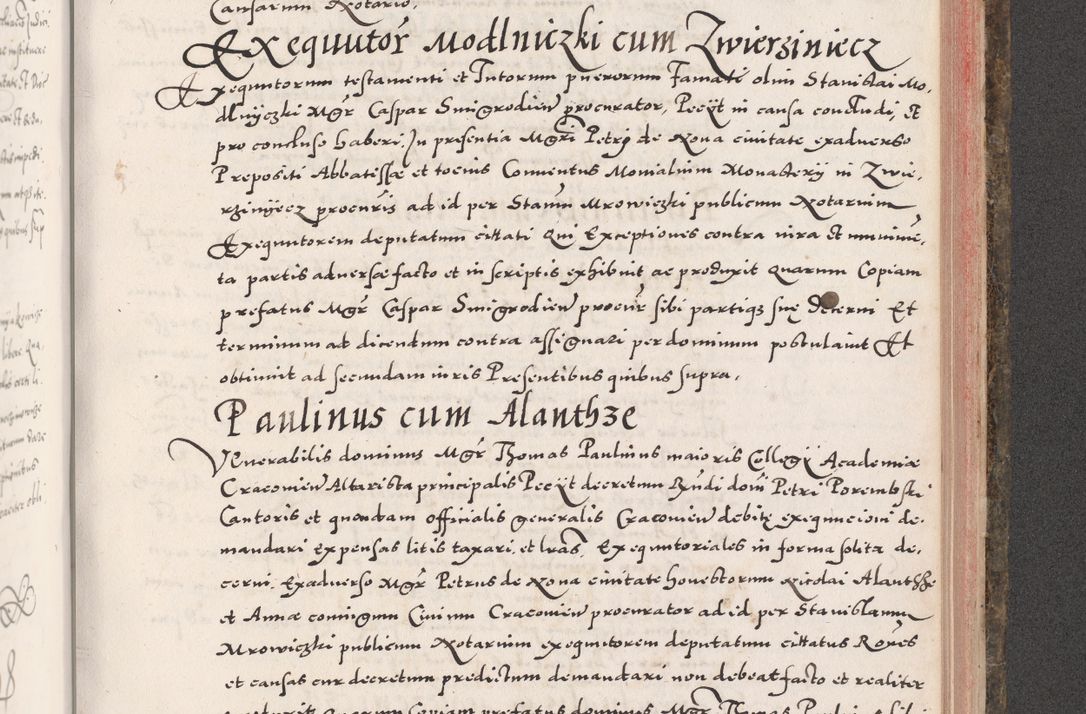 Causarum Notario.
Exequutor Modlniczki cum Zwierziniecz
Exequutorum testamenti et Tutorum puerorum Famati olim Stanislai Mo-
dlnyczki Mgr Caspar Smigrodien procurator, Pecÿt in causa concludi, Et
pro concluso haberi, In presentia Mgri Petri de Nova civitate exadverso
Prepositi Abbatissæ et tocius Conventus Monialium Monasterÿ in Zwie-
rzinÿecz procuris ad id per Stanm Mrowiczki publicum Notarium
Exequutorem deputatum cittati Qui Exceptiones contra iura Et munime-
ta partis adversæ facto et in scriptis exhibuit ac produxit Quarum Copiam
prefatus Mgr Caspar Smigrodien procur sibi partiq3 suę Decerni Et
terminum ad dicendum contra assignari per dominum postulavit Et
obtinuit ad secundam iuris Presentibus quibus supra.
Paulinus cum Alanthze
Venerabilis dominus Mgr Thomas Paulinus maioris Collegÿ Academiæ
Cracovien Altarista principalis Pecÿt decretum Rndi domi Petri Porembski
Cantoris et quondam officialis generalis Cracovien debitę exequucioni de-
mandari Expensas litis taxari, et lras, Exequutoriales in forma solita de-
cerni. Exadverso Mgr Petrus de Nova civitate honestorum Nicolai Alanthze
et Annæ coniugum Civium Cracovien procurator ad id per Stanislaum
Mrowiczki publicum Notarium exequutorem deputatum cittatus Rones
et causas cur decretum predictum demandari non debeat facto et realiter
Quarum Copiam prefatus dominus Mgr Thomas